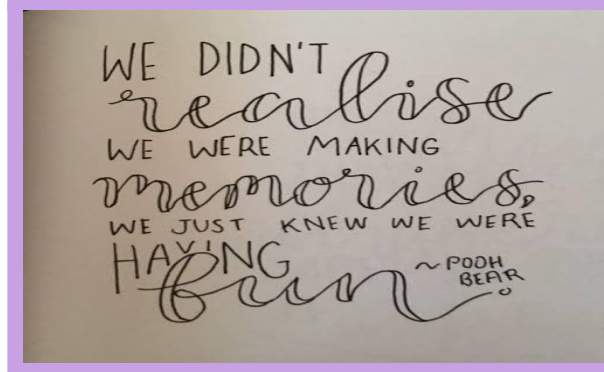 WE DIDN'T
realise
WE WERE MAKING
memories,
WE JUST KNEW WE WERE
HAVING
fun.
~ POOH
BEAR